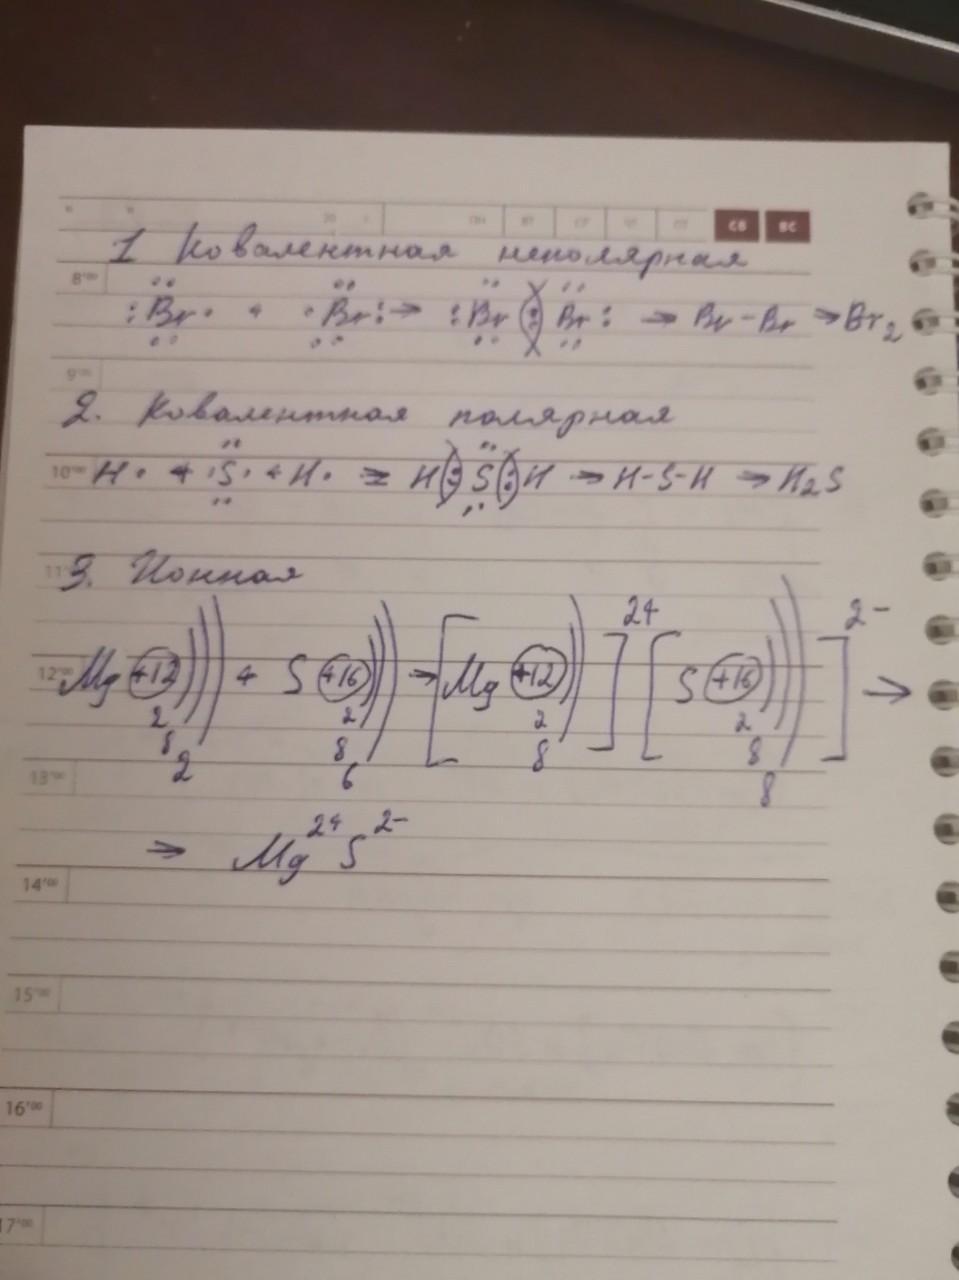 СБ ВС
1 Ковалентная неполярная
8:00
:Br· + ·Br: → :Br(:)Br: → Br-Br → Br2
9:00
2. Ковалентная полярная
10:00 H· + ·S· + H· = H(:)S(:)H → H-S-H → H2S
11:00 3. Ионная
12:00 Mg +12 ))) + S +16 ))) → [Mg +12 )) ]2+ [S +16 ))) ]2- →
2 2 2 2
8 8 8 8
2 6 8
13:00
→ Mg2+ S2-
14:00
15:00
16:00
17:00